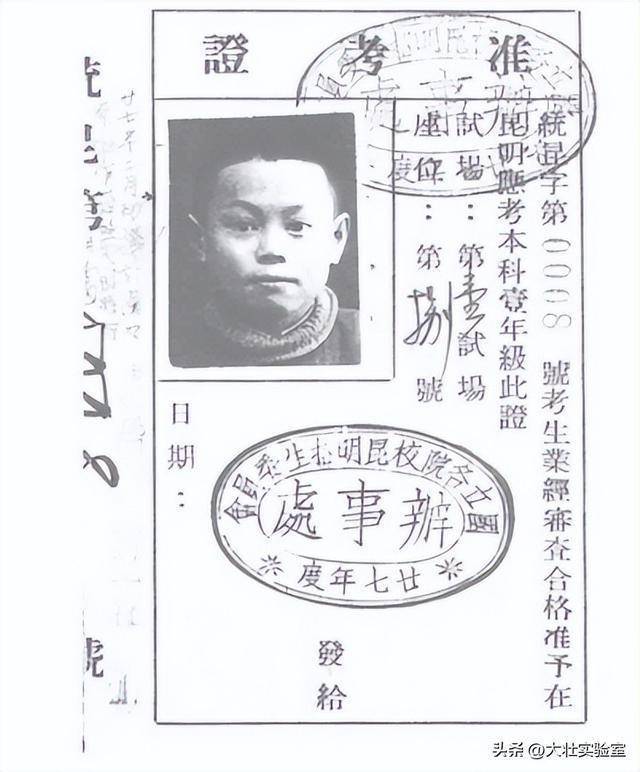 准考證
統昆字第0008號考生業經審查合格准予在
昆明應考本科壹年級此證
試場：第壹試場
座位：第捌號
日期：
國立各院校昆明招生委員會
辦事處
廿七年度
發給
號
头条 @大壮实验室